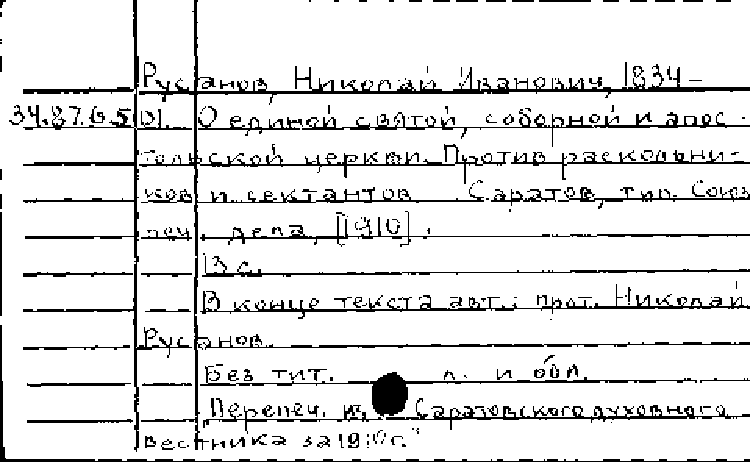 Русанов, Николай Иванович, 1834-
34.87.65 01. О единой святой, соборной и апос-
тольской церкви. Против раскольни-
ков и сектантов. Саратов, тип. Союз
печ. дела, [1910].
13 с.
В конце текста авт.: прот. Николай
Русанов.
Без тит. л. и обл.
Перепеч. из Саратовского духовного
вестника за 1910г."